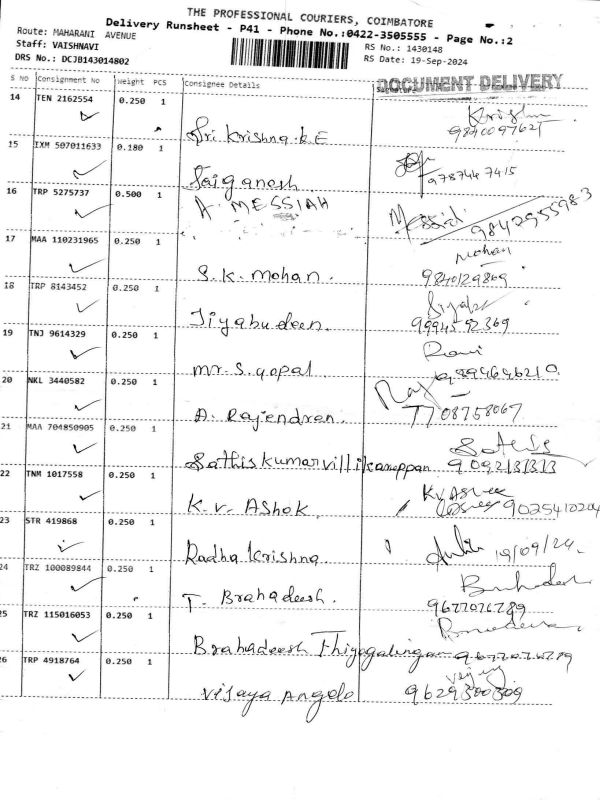 THE PROFESSIONAL COURIERS, COIMBATORE
Delivery Runsheet - P41 - Phone No.:0422-3505555 - Page No.:2
Route: MAHARANI AVENUE
RS No.: 1430148
Staff: VAISHNAVI
RS Date: 19-Sep-2024
DRS No.: DCJB143014802
DOCUMENT DELIVERY
S NO Consignment No Weight PCS Consignee Details
14 TEN 2162554 0.250 1
Sri Krishna.k.E
15 IXM 507011633 0.180 1
Saiganesh 9787447415
16 TRP 5275737 0.500 1
A. MESSIAH 9842955983
17 MAA 110231965 0.250 1 Mohan
S.K. mohan. 9840129869
18 TRP 8143452 0.250 1
Jiyabudeen. 9994592369
19 TNJ 9614329 0.250 1 Ravi
mr.S.gopal
20 NKL 3440582 0.250 1
A. Rajendran. 7708758067
21 MAA 704850905 0.250 1
Sathiskumarvillikannappan
22 TNM 1017558 0.250 1 K.V.Ashok
K.v. Ashok. 9025410204
23 STR 419868 0.250 1
Radha Krishna 19/09/24.
24 TRZ 100089844 0.250 1
T. Brahadeesh. 9677076789
25 TRZ 115016053 0.250 1
Brahadeesh Thiyagalingam 9677076789
26 TRP 4918764 0.250 1
Vijaya Angelo 9629300309